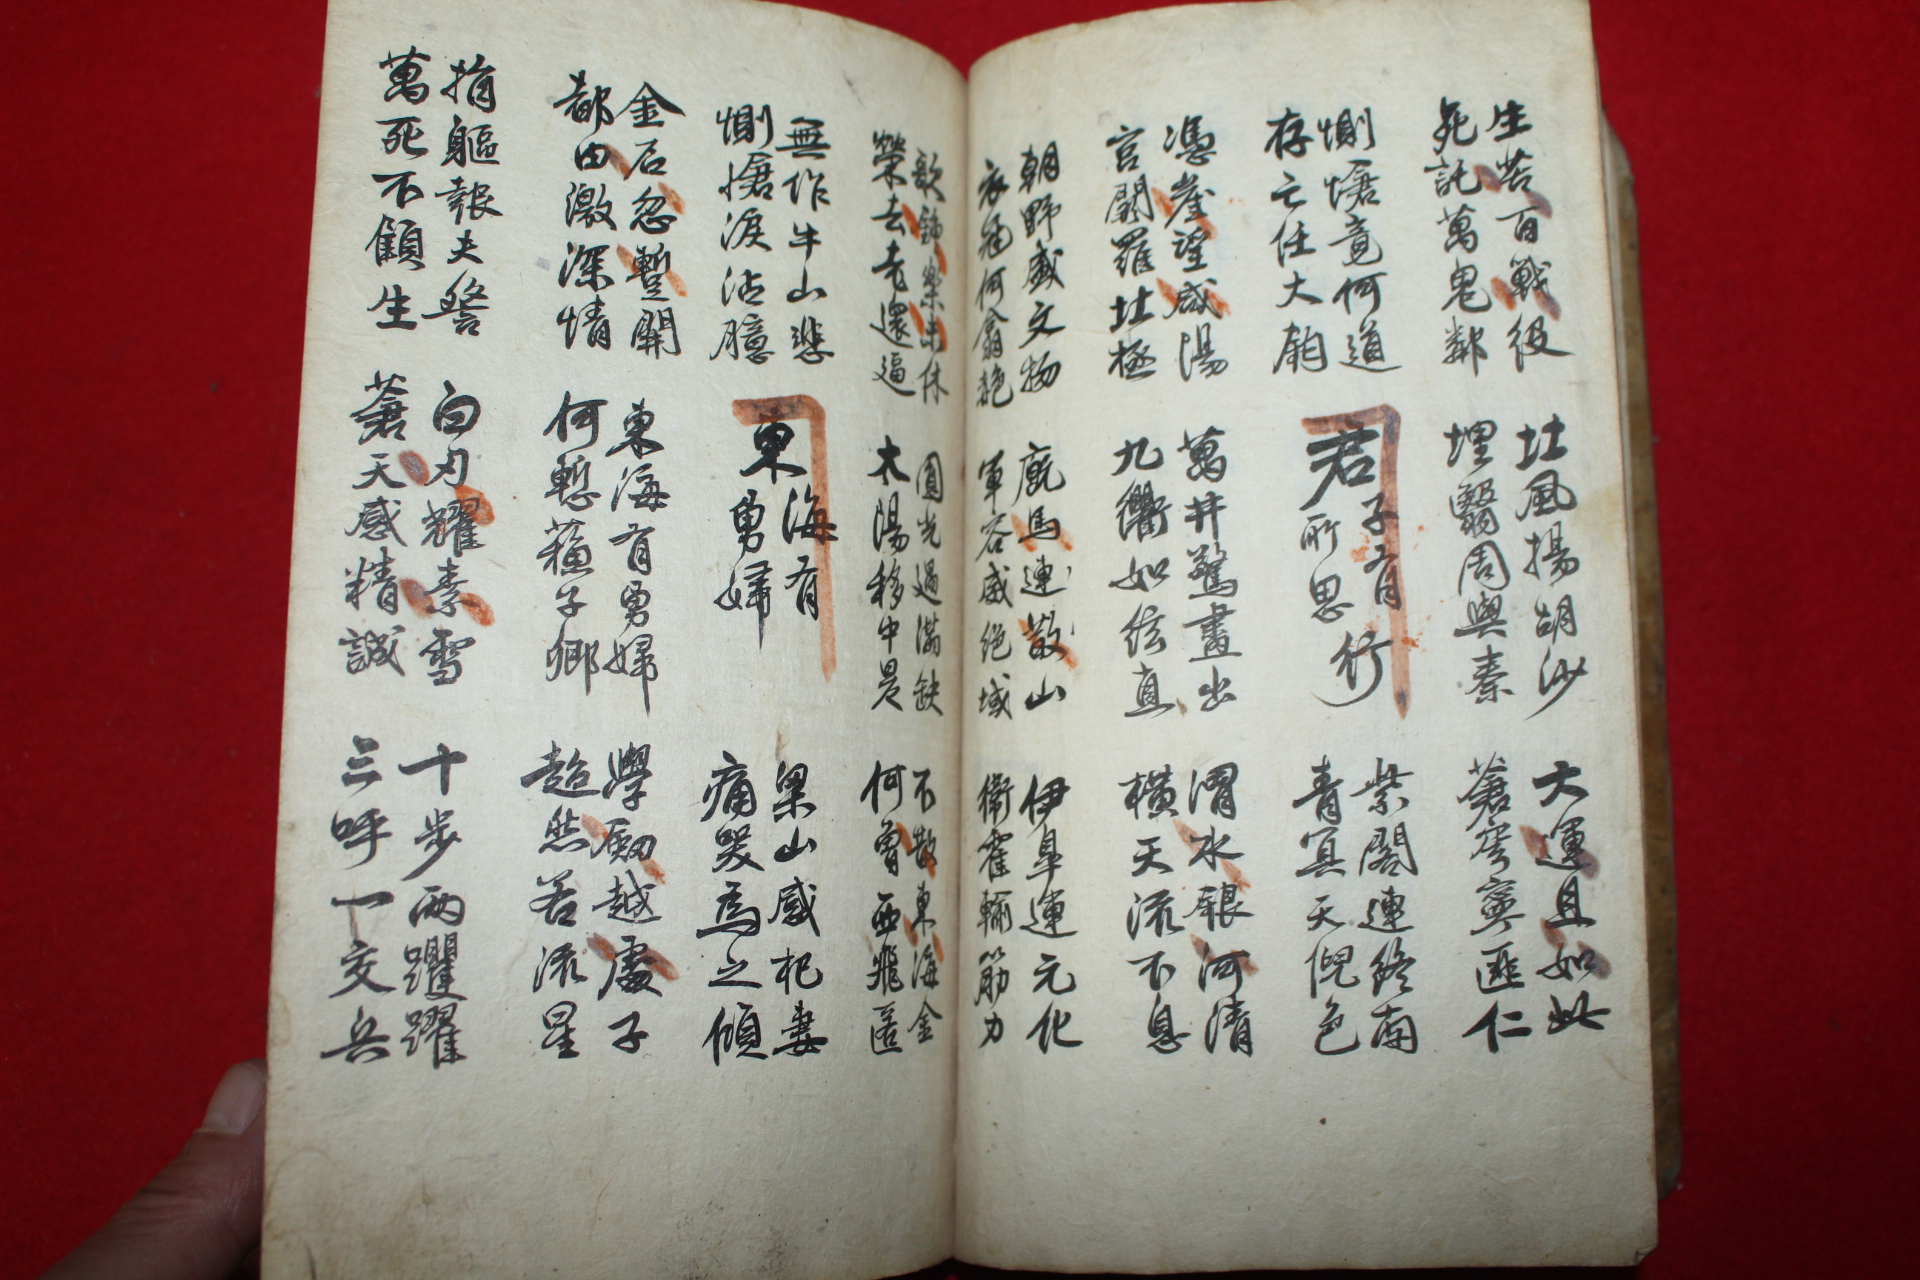 生苦百戰役
死託萬鬼鄰
北風揚胡沙
埋翳周與秦
大運且如此
蒼穹寧匪仁
惻愴竟何道
存亡任大鈞
君子有所思行
紫閣連終南
青冥天倪色
憑崖望咸陽
宮闕羅北極
萬井驚畫出
九衢如弦直
渭水銀河清
橫天流不息
朝野盛文物
衣冠何翕赩
廐馬連散山
軍容威絕域
伊皐運元化
衛霍輸筋力
歌鍾樂未休
榮去老還逼
圓光過滿缺
太陽移中昃
不散東海金
何曾西飛匿
無作牛山悲
惻愴淚沾臆
東海有勇婦
梁山感杞妻
痛哭爲之傾
金石忽蹔開
都由激深情
東海有勇婦
何慙蘓子卿
學劒越處子
超然若流星
捐軀報夫讐
萬死不顧生
白刃耀素雪
蒼天感精誠
十步兩躩躍
三呼一交兵